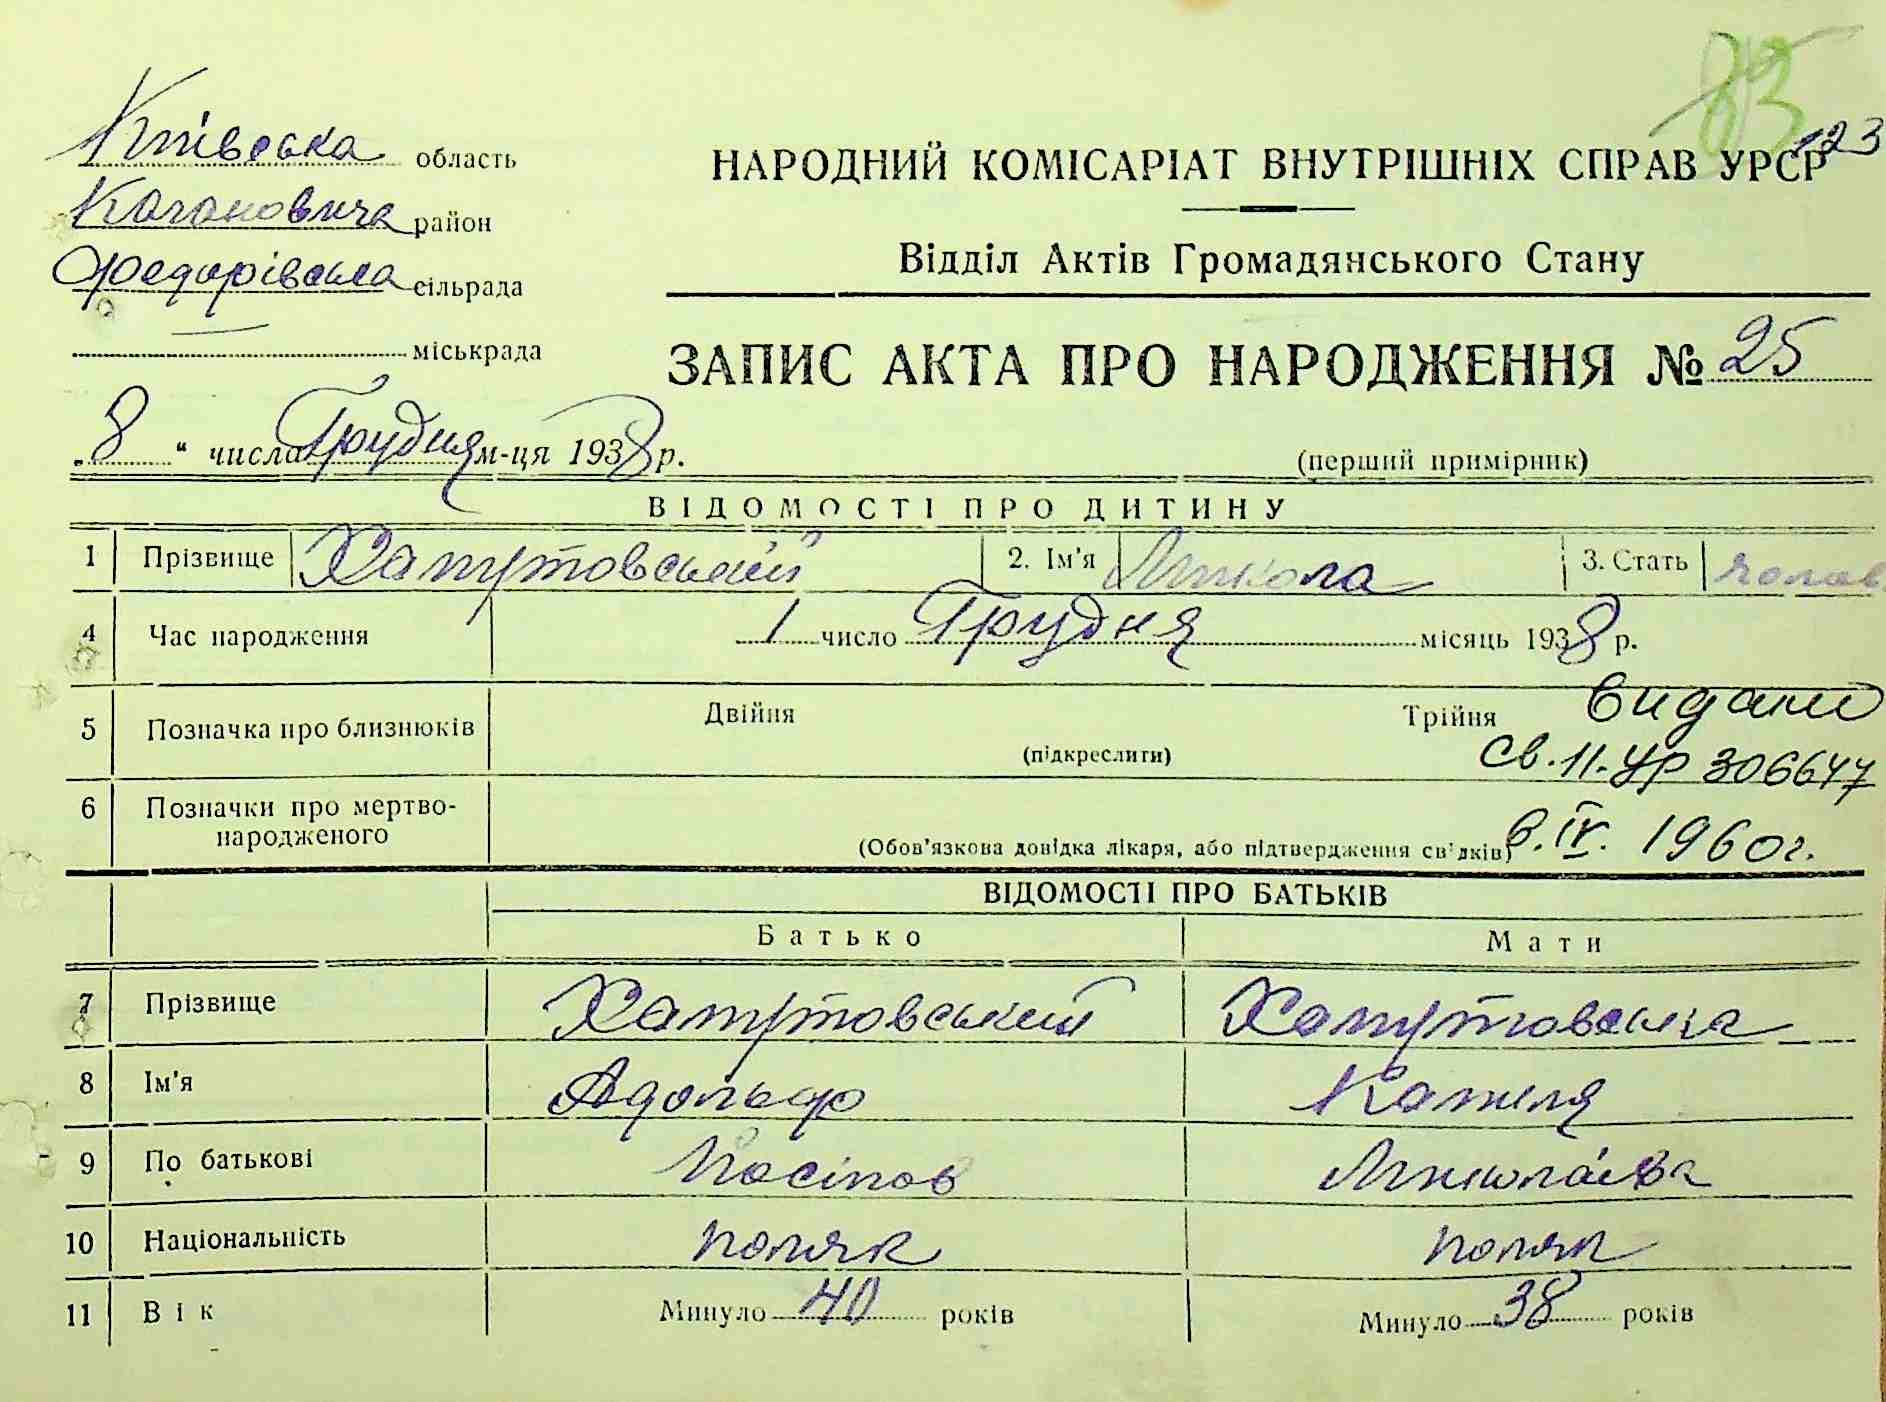 85
123
Київська область
Кагановича район
Федорівська сільрада
міськрада
НАРОДНИЙ КОМІСАРІАТ ВНУТРІШНІХ СПРАВ УРСР
Відділ Актів Громадянського Стану
ЗАПИС АКТА ПРО НАРОДЖЕННЯ № 25
„8“ числа Грудня м-ця 1938 р.
(перший примірник)
ВІДОМОСТІ ПРО ДИТИНУ
1 Прізвище Хапутовський 2. Ім'я Микола 3. Стать чолов
4 Час народження 1 число Грудня місяць 1938 р.
5 Позначка про близнюків Двійня Трійня
(підкреслити)
Видано
св. II-УР 306647
6 Позначки про мертво-
народженого
(Обов'язкова довідка лікаря, або підтвердження свідків)
6. IV. 1960г.
ВІДОМОСТІ ПРО БАТЬКІВ
Батько Мати
7 Прізвище Хапутовський Хапутовська
8 Ім'я Адольф Камиля
9 По батькові Йосіпов Миколаєва
10 Національність поляк поляк
11 Вік Минуло 40 років Минуло 38 років